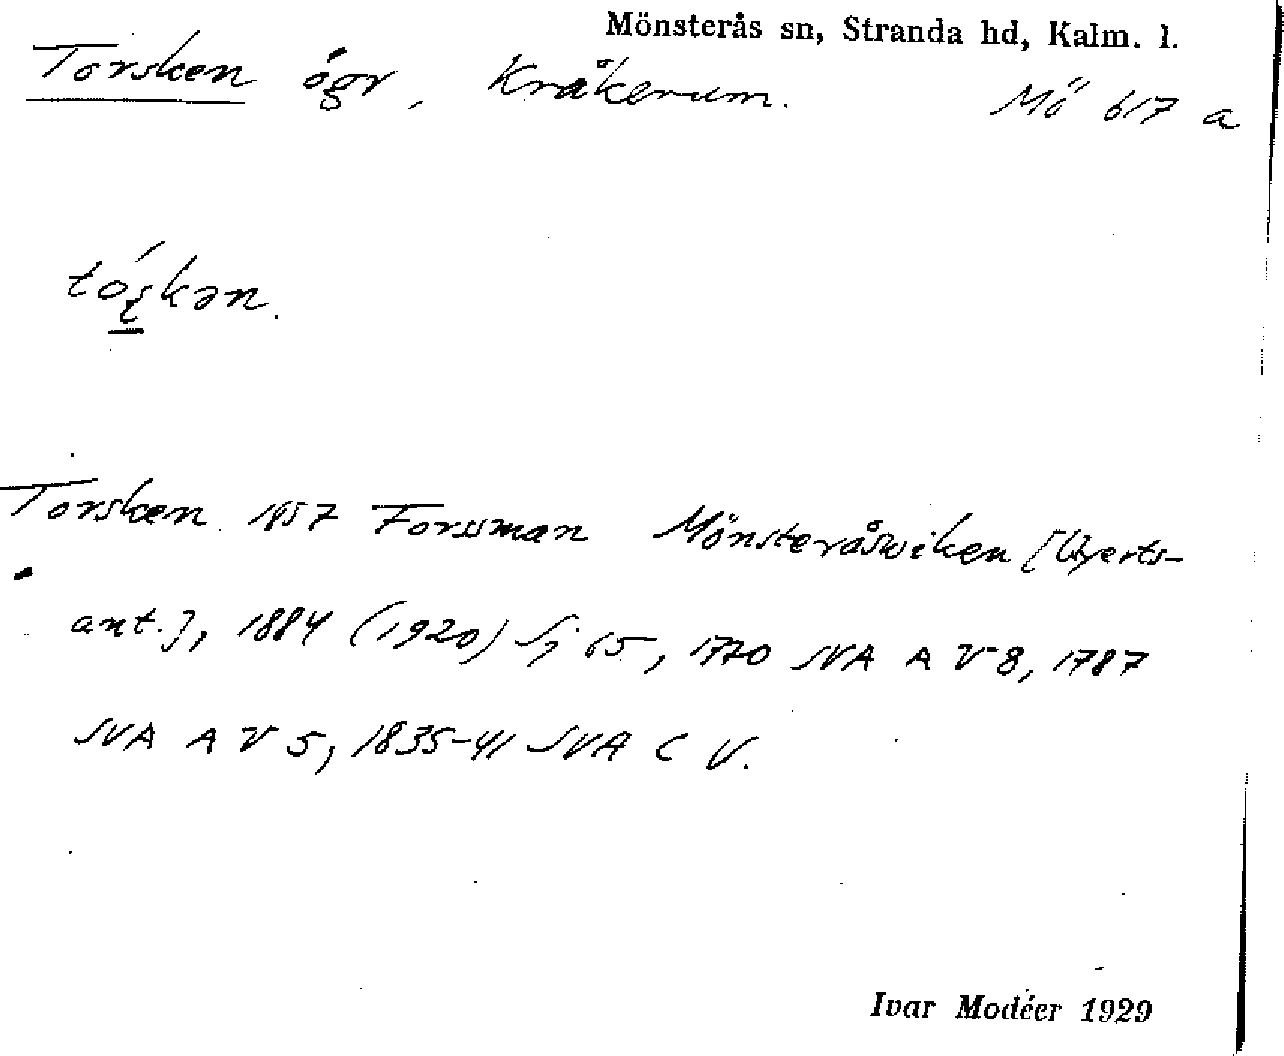 Mönsterås sn, Stranda hd, Kalm. l.
Torsken ögr, Kråkerum. Mö 617 a
tóʂkən.
Torsken 1857 Forssman Mönsteråswiken [
ant.], 1884 (1920) Sj 65, 1770 SVA A V 8, 1787
SVA A V 5, 1835-41 SVA C V.
Ivar Modéer 1929